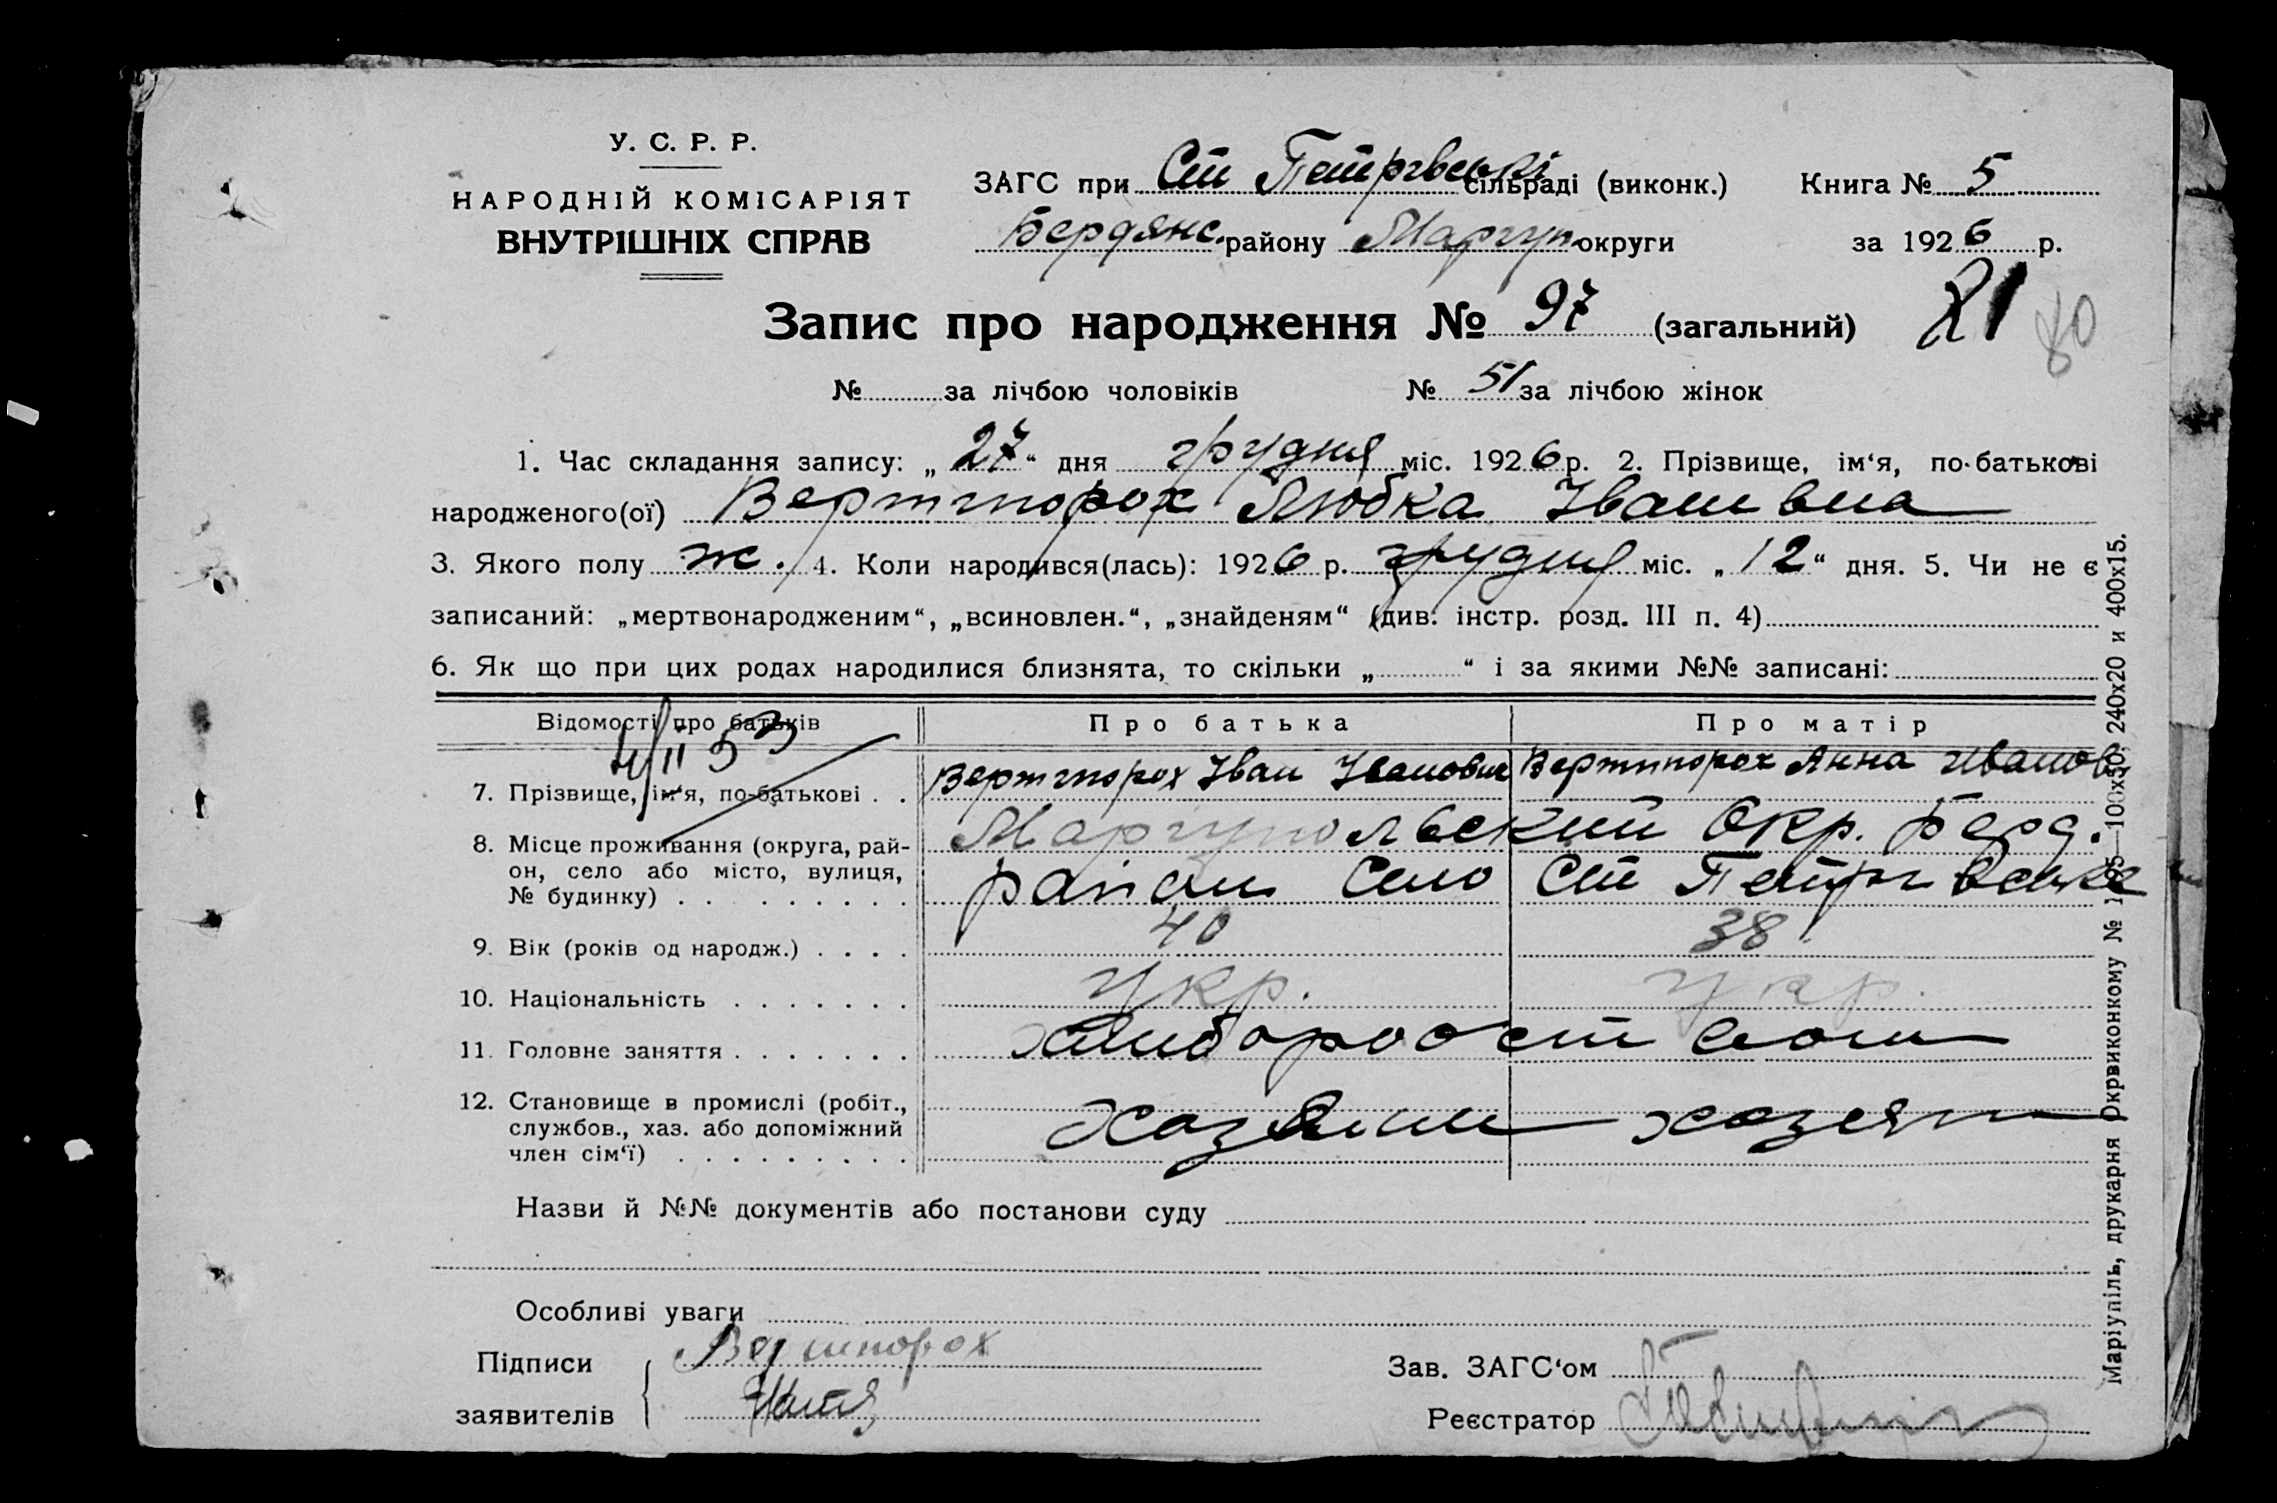 У. С. Р. Р.
НАРОДНІЙ КОМІСАРІЯТ
ВНУТРІШНІХ СПРАВ
ЗАГС при Ст Петрівські сільраді (виконк.) Книга № 5
Бердянс. району Маріуп. округи за 1926 р.
Запис про народження № 97 (загальний) 21 80
№ за лічбою чоловіків № 51 за лічбою жінок
1. Час складання запису: „27“ дня грудня міс. 1926 р. 2. Прізвище, ім‘я, по-батькові
народженого(ої) Вертипорох Любка Івановна
3. Якого полу ж. 4. Коли народився(лась): 1926 р. грудня міс. „12“ дня. 5. Чи не є
записаний: „мертвонародженим“, „всиновлен.“, „знайденям“ (див. інстр. розд. III п. 4)
6. Як що при цих родах народилися близнята, то скільки „ “ і за якими №№ записані:
Відомості про батьків Про батька Про матір
7. Прізвище, ім‘я, по-батькові . . Вертипорох Іван Іванович Вертипорох Анна Иванов
8. Місце проживання (округа, рай- Маріупольский Окр. Берд.
он, село або місто, вулиця, район Село Ст Петрівське
№ будинку) . . . . . . . . .
9. Вік (років од народж.) . . . . 40 38
10. Національність . . . . . . . Укр. Укр.
11. Головне заняття . . . . . . .
12. Становище в промислі (робіт., хозяин хозяй
службов., хаз. або допоміжний
член сім‘ї) . . . . . . . . .
Назви й №№ документів або постанови суду
Особливі уваги
Підписи Вертипорох
заявителів
Зав. ЗАГС‘ом
Реєстратор
Маріупіль, друкарня Окрвиконкому № 240х20 и 400х15.